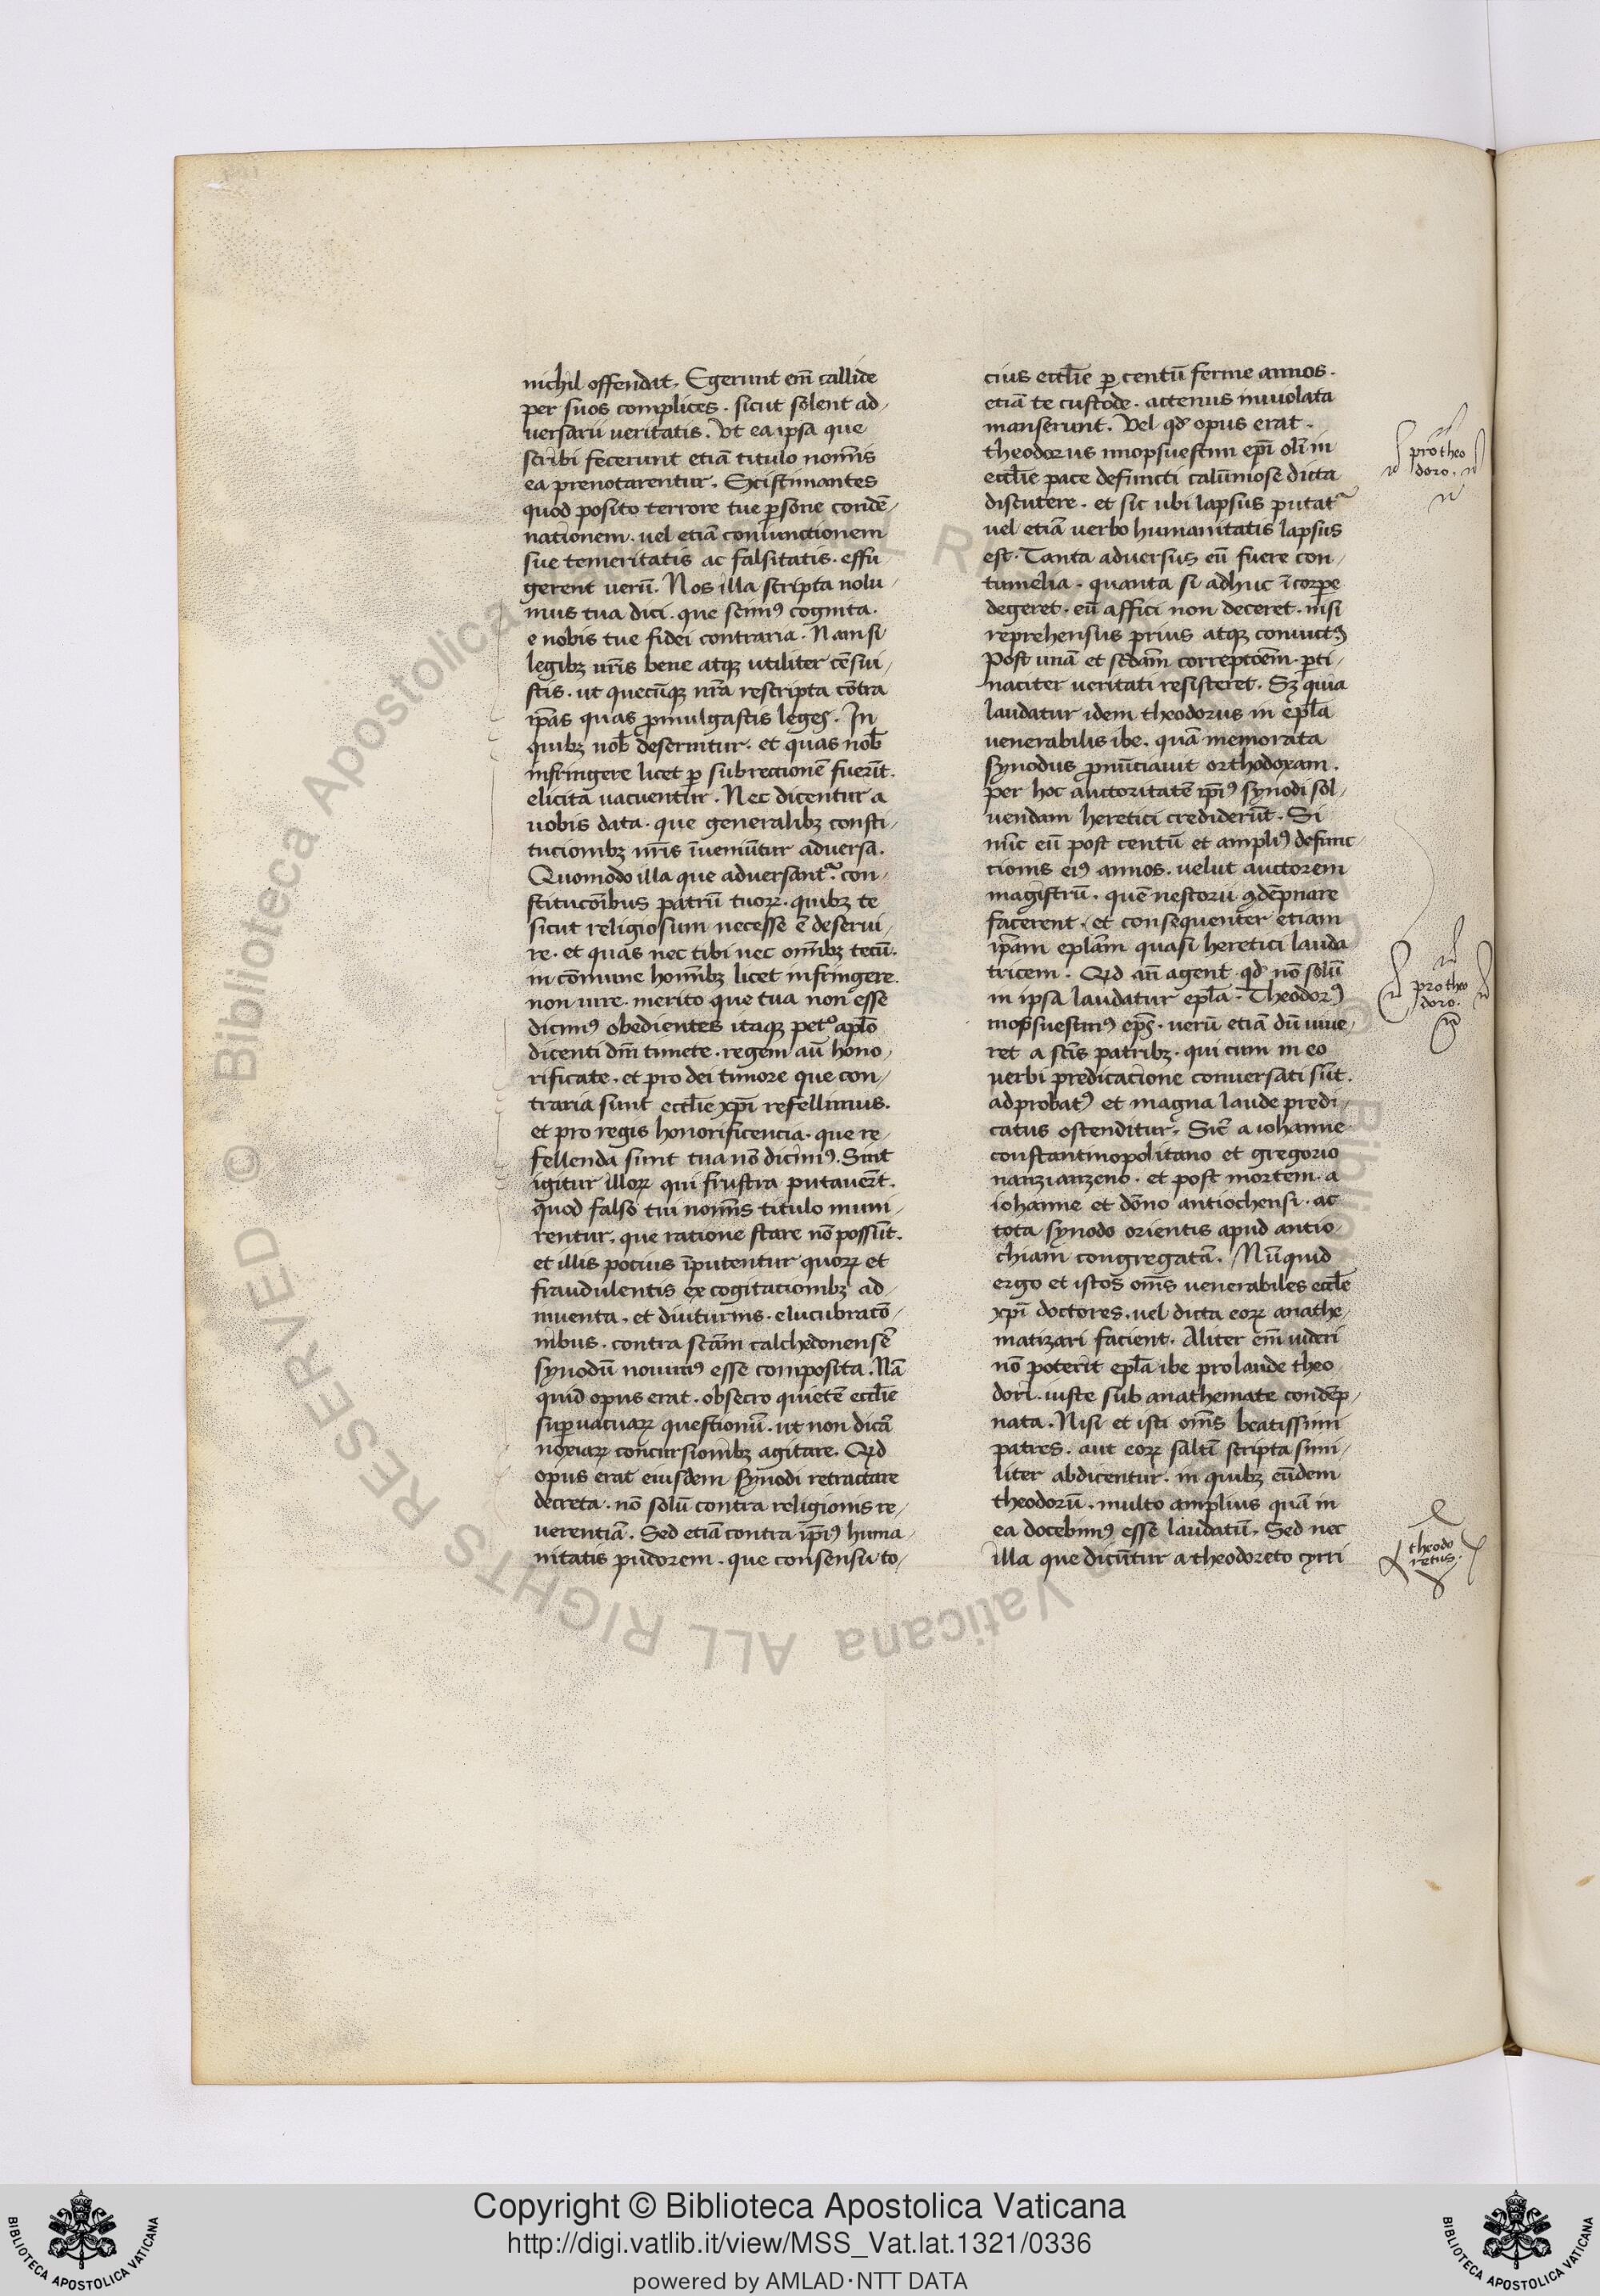 nichil offendat. Egerunt em̄ callide
per suos complices. sicut solent ad-
versarii veritatis. Vt ea ipsa que
scribi fecerunt etiā titulo nom̄is
ea prenotarentur. Existimantes
quod posito terrore tue p̱sone condē-
nationem. vel etiā coniunctionem
sue temeritatis ac falsitatis. effu
gerent verū. Nos illa scripta nolu-
mus tua dici. que scimꝰ cognita.
e nobis tue fidei contraria. Nam si
legibꝫ nr̄is bene atqꝫ utiliter cēsui-
stis. ut quecūqꝫ nr̄a rescripta cōtra
ip̄as quas promulgastis leges. In
quibꝫ nob̄ deseruitur. et quas nob̄
infringere licet ꝑ subrectionē fuerīt.
elicita vacuentur. Nec dicentur a
vobis data. que generalibꝫ consti-
tucionibꝫ nr̄is īveniūtur adversa.
Quomodo illa que adversantur. con-
stitucōibus patrū tuoꝝ. quibꝫ te
sicut religiosum necesse ē deservi-
re. et quas nec tibi nec om̄ibꝫ tecū.
in cōmune hom̄ibꝫ licet infringere.
non iure. merito que tua non esse
dicimꝰ obedientes itaqꝫ petro apl̄o
dicenti dm̄ timete. regem aū hono-
rificate. et pro dei timore que con-
traria sunt eccl̄ie xp̄i refellimus.
et pro regis honorificencia. que re-
fellenda sunt tua nō dicimꝰ. Sint
igitur illoꝝ qui frustra putavēr̄t.
quod falso tui nom̄is titulo muni-
rentur. que ratione stare nō possūt.
et illis pocius īputentur quoꝝ et
fraudulentis excogitacionibꝫ ad-
inventa. et diuturnis. elucubracō-
nibus. contra scām calchedonensē
synodū novimꝰ esse composita. Nā
quid opus erat. obsecro quietē eccl̄ie
suꝑvacuaꝝ questionū. ut non dicā
noxiaꝝ concursionibꝫ agitare. Qid
opus erat eiusdem synodi retractare
decreta. nō solū contra religionis re-
verentiā. Sed etiā contra ip̄iꝰ huma-
nitatis pudorem. que consensu to-
cius eccl̄ie ꝑ centū ferme annos.
etiā te custode. actenus inviolata
manserunt. Vel qd̄ opus erat.
theodorus mopsuestini ep̄i oli m in
eccl̄ie pace defuncti calūniose dicta
discutere. et sic ubi lapsus putatur
vel etiā verbo humanitatis lapsus
est. Tanta adversus eū fuere con-
tumelia. quanta si adhuc ī corpe
degeret. eū affici non deceret. nisi
reprehensus prius atqꝫ convictꝰ
Post unā et scd̄am correptōem. ꝑti-
naciter veritati resisteret. Sꝫ quia
laudatur idem theodorus in epl̄a
venerabilis ibe. quā memorata
synodus pronūciavit orthodoxam.
per hoc auctoritatē ip̄iꝰ synodi sol-
vendam heretici crediderūt. Si
nūc eū post centū et ampliꝰ defunc-
tionis eiꝰ annos. velut auctorem
magistrū. quē nestorii ꝯdēpnare
facerent. et consequenter etiam
ip̄am epl̄am quasi heretici lauda
tricem. Qid an̄ agent. qd̄ nō solū
in ipsa laudatur epl̄a. Theodorꝰ
mopsuestinꝰ ep̄s. verū etiā dū vive-
ret a sc̄is patribꝫ. qui cum in eo
verbi predicacione conversati sūt.
adprobatꝰ et magna laude predi-
catus ostenditur. Sic̄ a iohanne
constantinopolitano et gregorio
nanzianzeno. et post mortem. a
iohanne et dōno antiochensi. ac
tota synodo orientis apud antio-
chiam congregatā. Nūquid
ergo et istos om̄s venerabiles eccl̄e
xp̄i doctores. vel dicta eoꝝ anathe-
matizari facient. Aliter em̄ videri
nō poterit epl̄a ibe pro laude theo
dori. iuste sub anathemate condēp-
nata. Nisi et isti om̄s beatissimi
patres. aut eoꝝ saltī scripta simi-
liter abdicentur. in quibꝫ eūdem
theodorū. multo amplius quā in
ea docebimꝰ esse laudatū. Sed nec
illa que dicūtur a theodoreto cyrri
pro theo
doro.
pro theo
doro.
theodo
retus.
© Biblioteca Apostolica Vaticana ALL RIGHTS RESERVED
Copyright © Biblioteca Apostolica Vaticana
http://digi.vatlib.it/view/MSS_Vat.lat.1321/0336
powered by AMLAD·NTT DATA
BIBLIOTECA APOSTOLICA VATICANA
BIBLIOTECA APOSTOLICA VATICANA